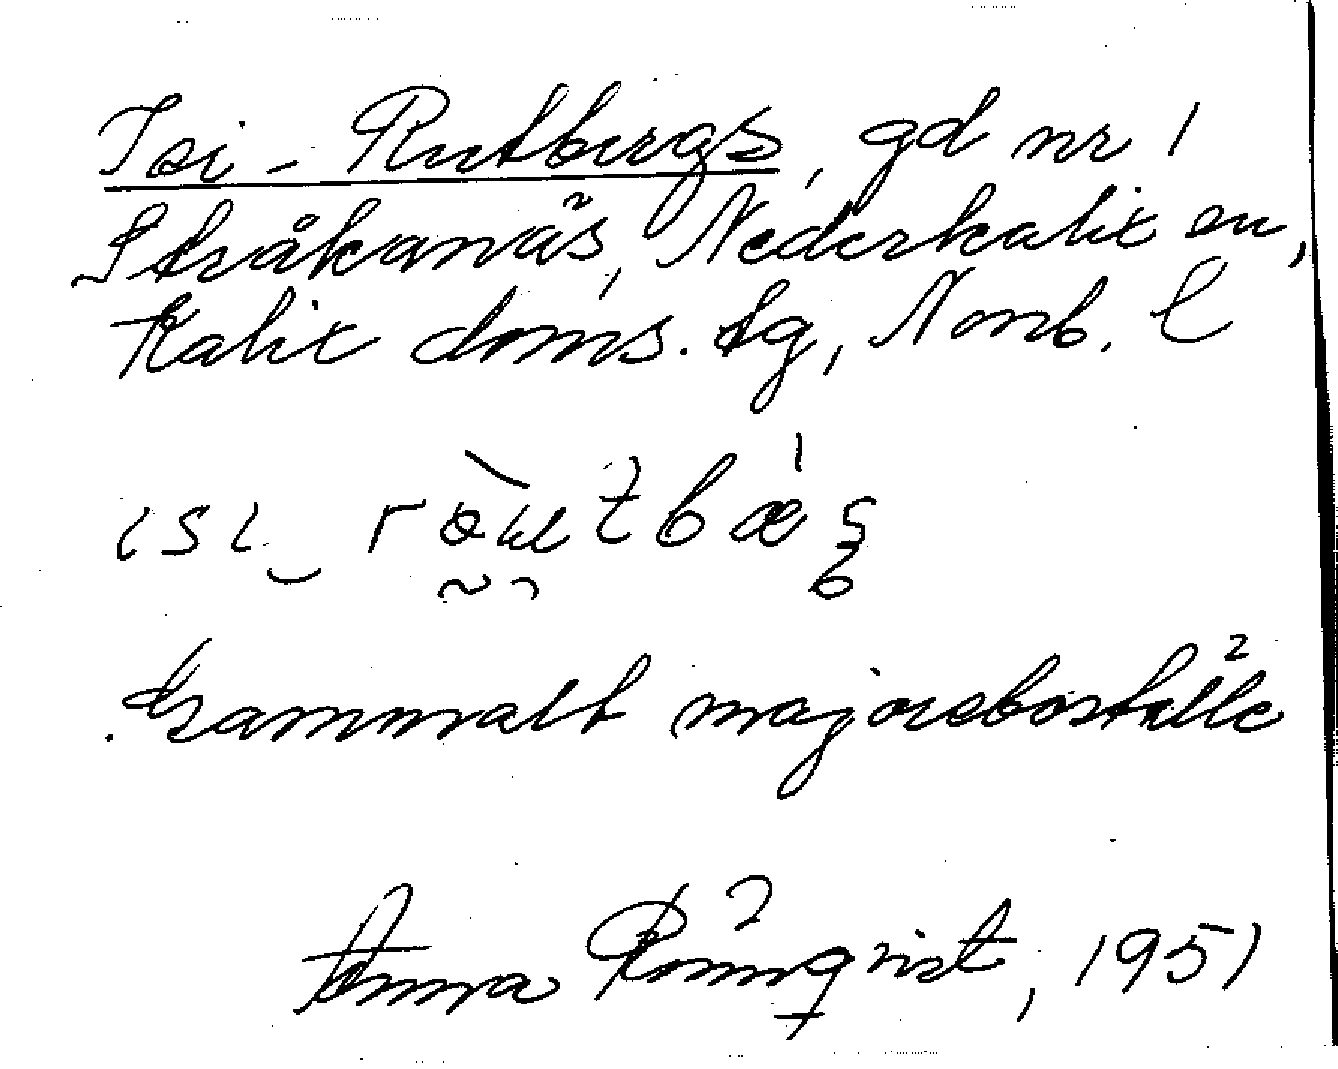 Isi-Rutbergs, gd nr 1
Stråkanäs, Nederkalix sn,
Kalix doms. tg, Norrb. l
ısı
Gammalt majorsboställe
Anna Rönnqvist, 1951